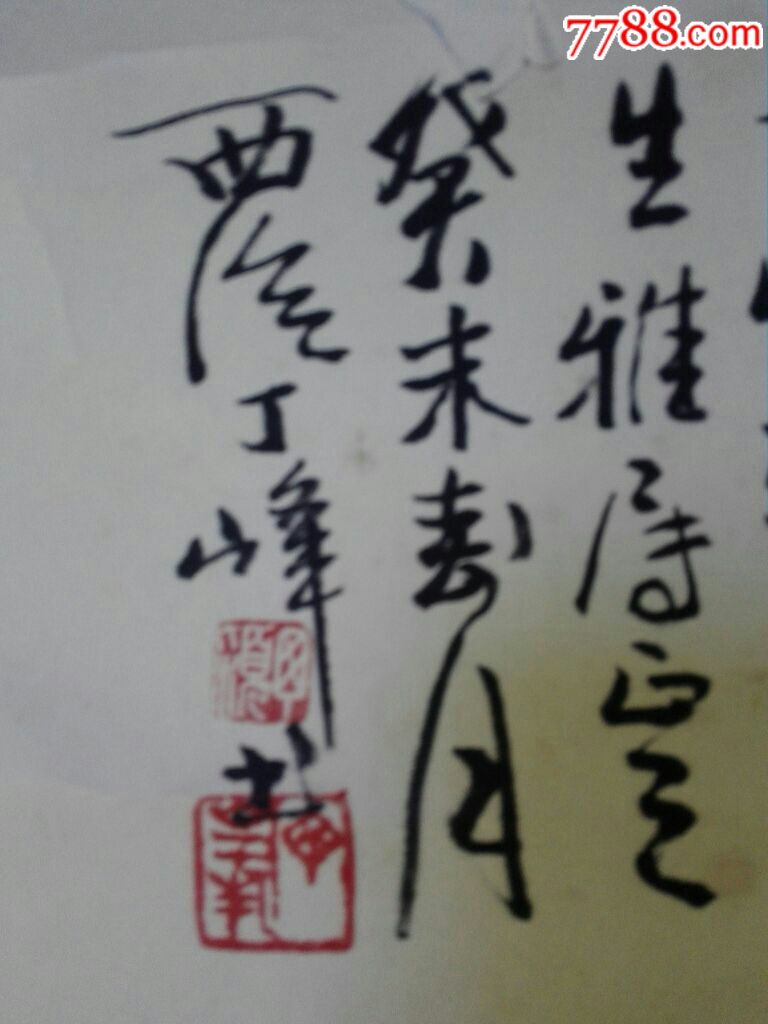 7788.com
生雅属正之
癸未春月
西泠丁峰书